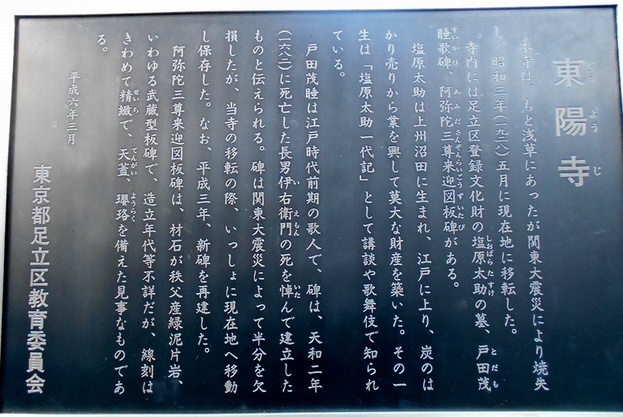 東陽寺
とうようじ
本寺は、もと浅草にあったが関東大震災により焼失
し、昭和三年(一九二八)五月に現在地に移転した。
寺内には足立区登録文化財の塩原太助の墓、戸田茂
睡歌碑、阿弥陀三尊来迎図板碑がある。
塩原太助は上州沼田に生まれ、江戸に上り、炭のは
かり売りから業を興して莫大な財産を築いた。その一
生は「塩原太助一代記」として講談や歌舞伎で知られ
ている。
戸田茂睡は江戸時代前期の歌人で、碑は、天和二年
(一六八二)に死亡した長男伊右衛門の死を悼んで建立した
ものと伝えられる。碑は関東大震災によって半分を欠
損したが、当寺の移転の際、いっしょに現在地へ移動
し保存した。なお、平成三年、新碑を再建した。
阿弥陀三尊来迎図板碑は、材石が秩父産緑泥片岩、
いわゆる武蔵型板碑で、造立年代等不詳だが、線刻は
きわめて精緻で、天蓋、瓔珞を備えた見事なものであ
る。
平成六年三月
東京都足立区教育委員会